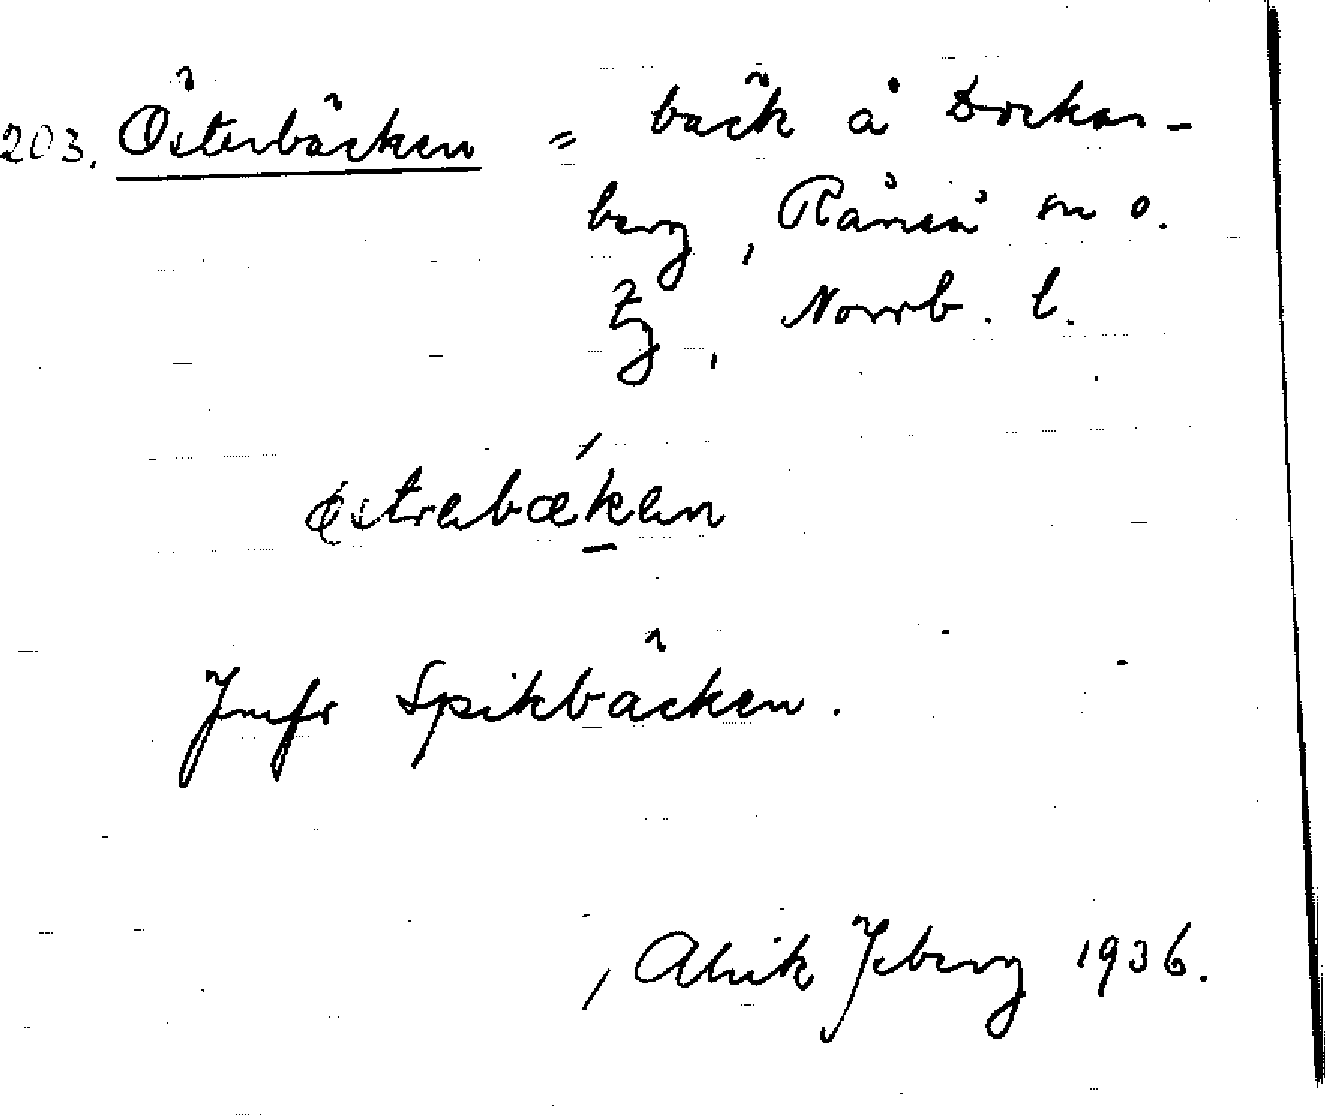 203. Österbäcken = bäck å Dockas-
berg, Råneå sn o.
tg, Norrb. l.
østrebæken
Jmfr Spikbäcken.
, Alrik Isberg 1936.